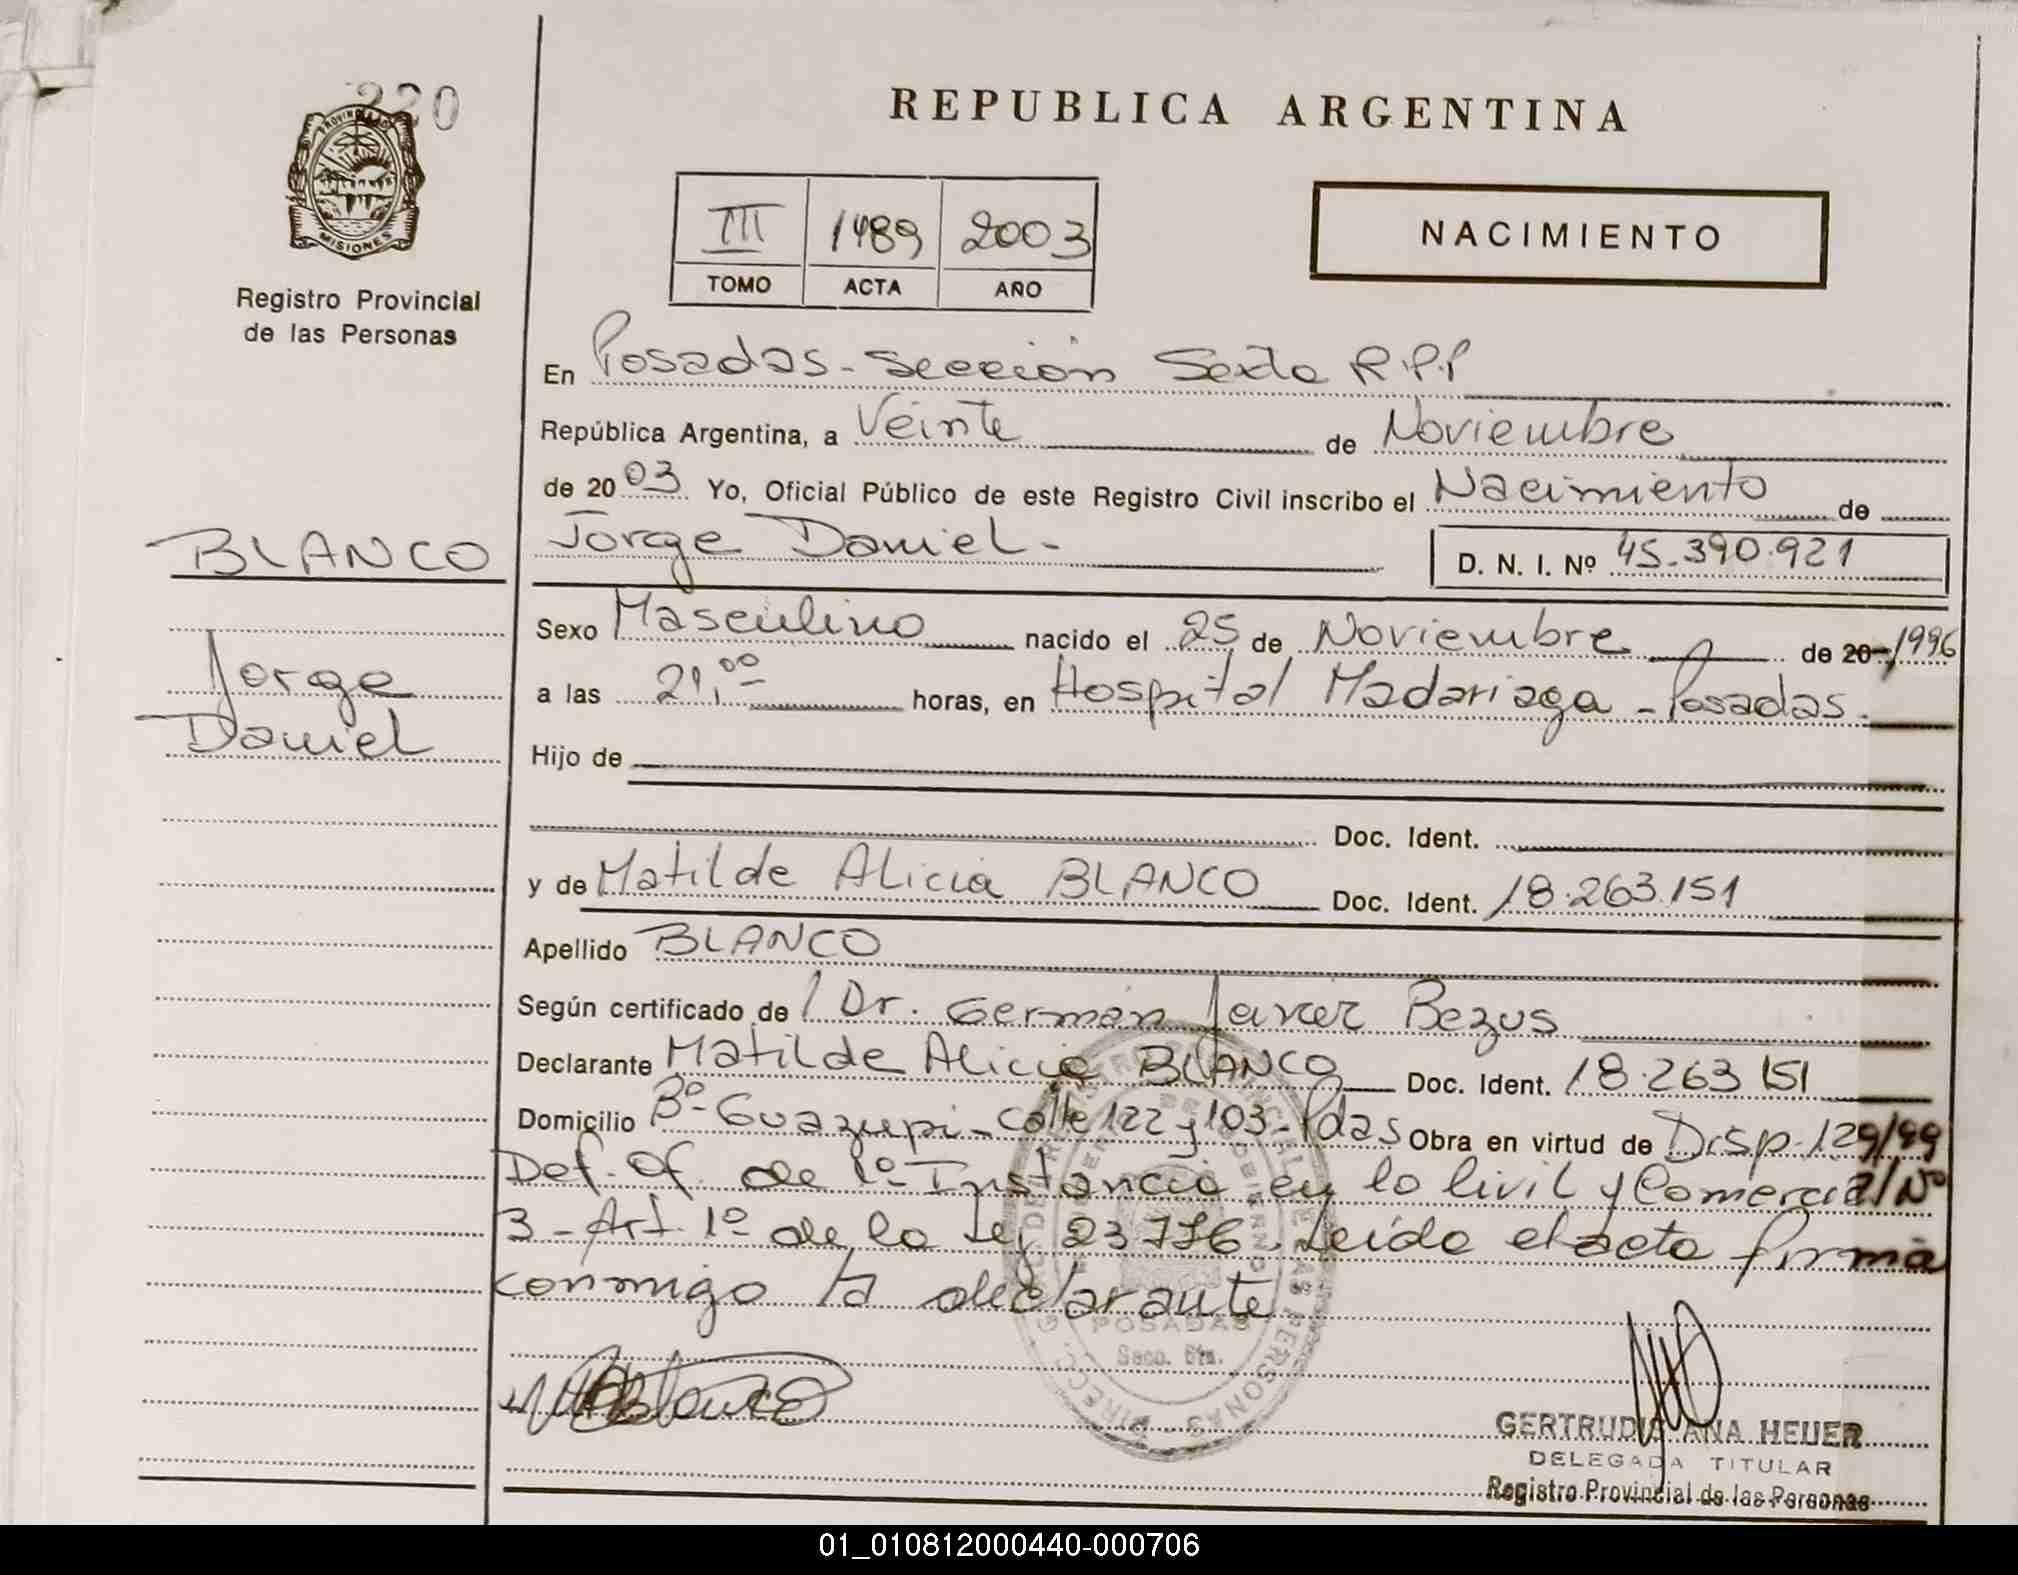 220
PROVINCIA DE
MISIONES
Registro Provincial
de las Personas
REPUBLICA ARGENTINA
III 1489 2003
TOMO ACTA AÑO
NACIMIENTO
En Posadas - Sección Sexta R.P.P
República Argentina, a Veinte de Noviembre
de 2003 Yo, Oficial Público de este Registro Civil inscribo el Nacimiento de
BLANCO
Jorge Daniel.-
D. N. I. Nº 45.390.921
Sexo Masculino nacido el 25 de Noviembre de 20-/1996
Jorge
Daniel
a las 21,00 horas, en Hospital Madariaga - Posadas.
Hijo de
Doc. Ident.
y de Matilde Alicia BLANCO Doc. Ident. 18.263.151
Apellido BLANCO
Según certificado de / Dr. Germán Javier Bezus
Declarante Matilde Alicia BLANCO Doc. Ident. 18.263.151
Domicilio Bº- Guazupi - calle 122 y 103 - Pdas Obra en virtud de Disp. 129/99
Def. Of. de 1º Instancia en lo Civil y Comercial Nº
3 - Art. 1º de la Ley 23776. Leída el acta firma
conmigo la declarante
POSADAS
Secc. 6ta.
Blanco
GERTRUDIS ANA HEUER
DELEGADA TITULAR
Registro Provincial de las Personas
01_010812000440-000706